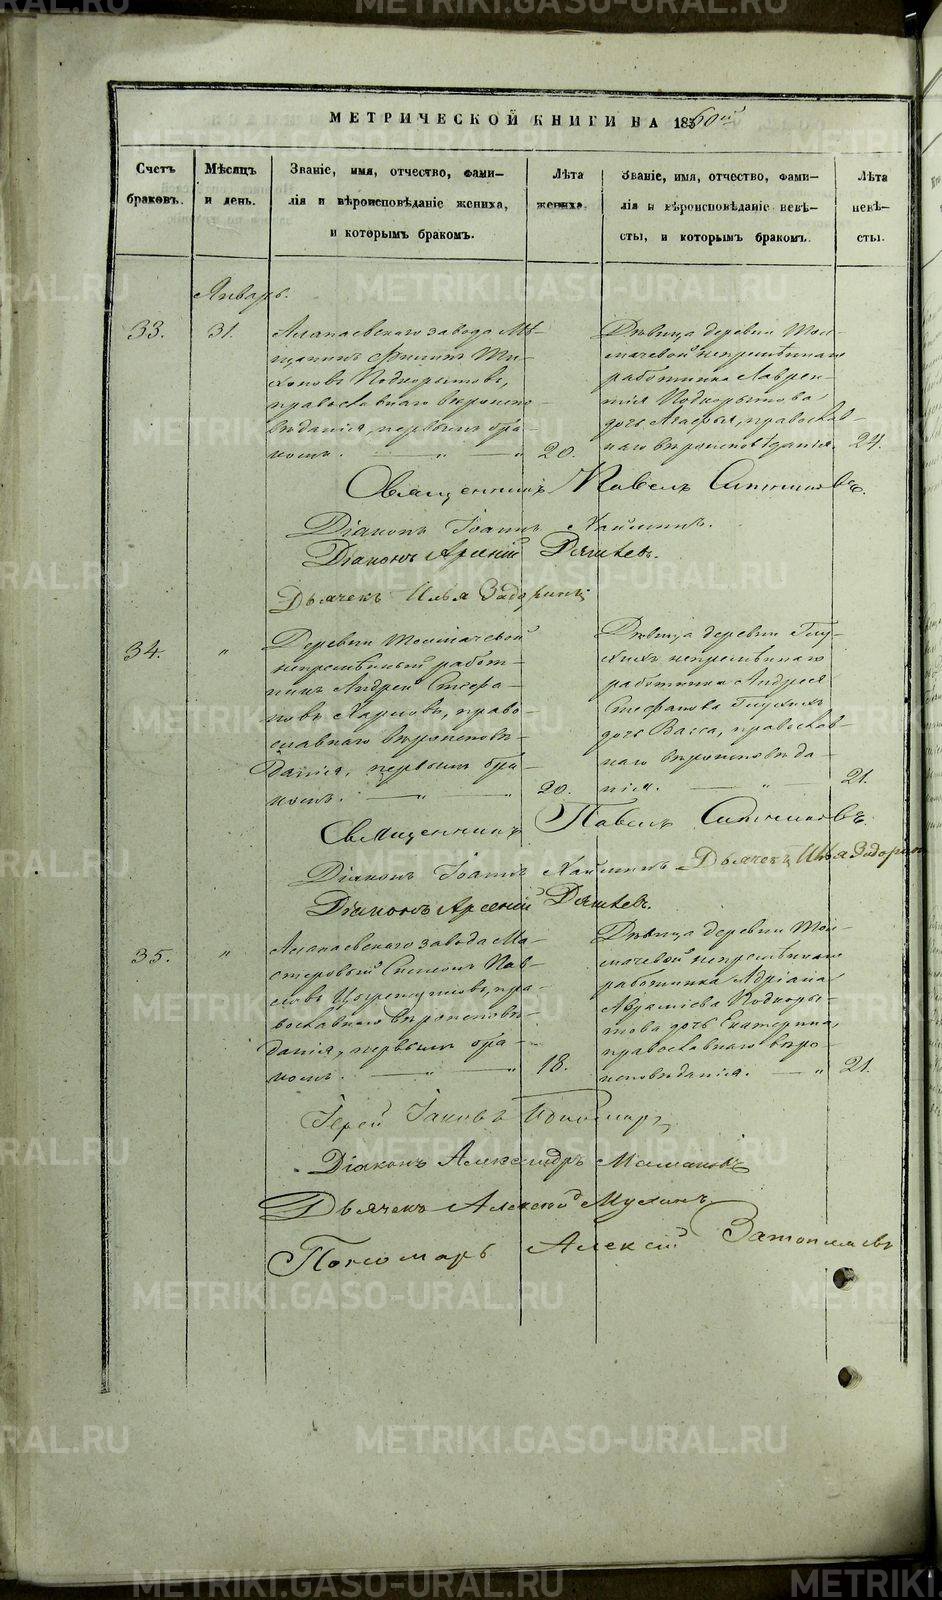 МЕТРИЧЕСКОЙ КНИГИ НА 1860й
Счетъ браковъ.
Мѣсяцъ и день.
Званіе, имя, отчество, фами-
лія и вѣроисповѣданіе жениха,
и которымъ бракомъ.
Лѣта
жениха.
Званіе, имя, отчество, фами-
лія и вѣроисповѣданіе невѣ-
сты, и которымъ бракомъ.
Лѣта
невѣ-
сты.
Январь.
33.
31.
Алапаевскаго завода Мѣ-
щанинъ Филипъ Ти-
хоновъ Подкорытовъ,
православнаго вѣроиспо-
вѣданія, первымъ бра-
комъ. — „ — „
20.
Дѣвица деревни Тол-
мачевой непремѣннаго
работника Лаврен-
тія Подкорытова
дочь Агафья, православ-
наго вѣроисповѣданія.
24.
Священникъ Павелъ Ситниковъ.
Діаконъ Іоаннъ
Діаконъ Арсеній
Дьячекъ Илья Задоринъ
34.
„
Деревни Толмачевой
непремѣнный работ-
никъ Андрей Стефа-
новъ Карповъ, право-
славнаго вѣроисповѣ-
данія, первымъ бра-
комъ. — „ — „
20.
Дѣвица деревни Глу-
хихъ непремѣннаго
работника Андрея
Стефанова Глухихъ
дочь Васса, православ-
наго вѣроисповѣда-
нія. — „ —
21.
Священникъ Павелъ Ситниковъ.
Діаконъ Іоаннъ Дьячекъ Илья Задоринъ
Діаконъ Арсеній
35.
„
Алапаевскаго завода Ма-
стеровой Симеонъ Пав-
ловъ пра-
вославнаго вѣроисповѣ-
данія, первымъ бра-
комъ. — „ — „
18.
Дѣвица деревни Тол-
мачевой непремѣннаго
работника Адріана
Авраміева Подкоры-
това дочь Екатерина,
православнаго вѣро-
исповѣданія. — „
21.
Іерей Іаковъ Пономаревъ
Діаконъ Александръ
Дьячекъ Алексей Мухинъ
Пономарь Алексій
METRIKI.GASO-URAL.RU